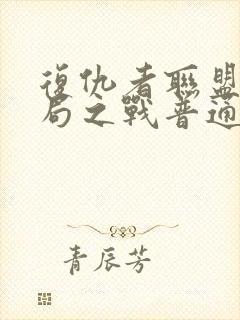 復仇者聯盟
局之戰普通
青辰芳